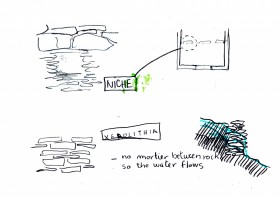 NICHE
XEROLITHIA
— no mortier between rock
so the water flows